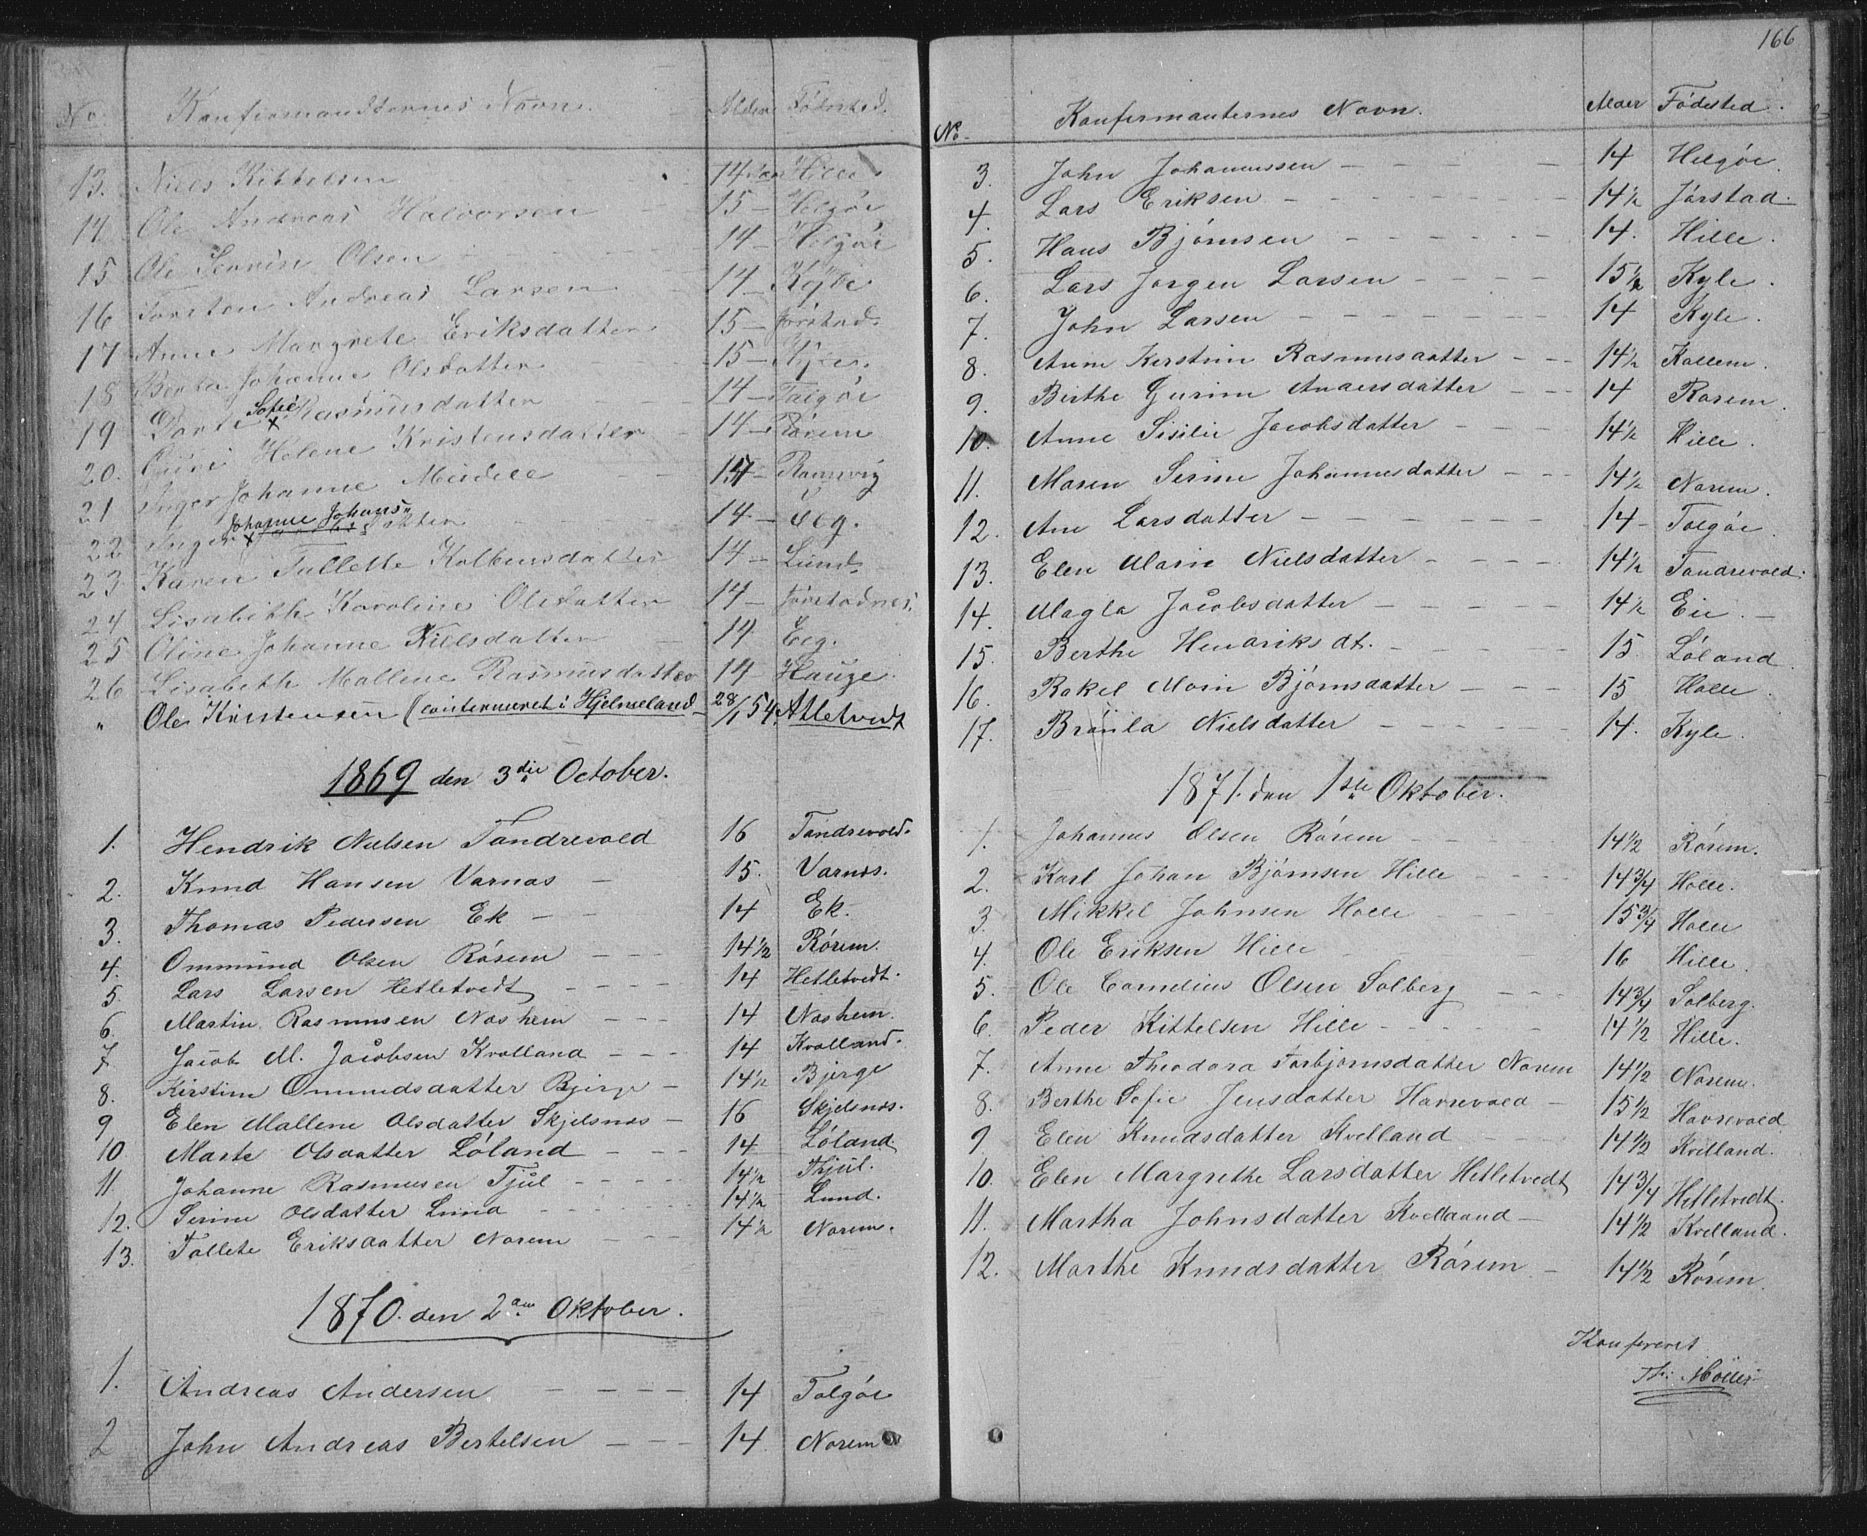 No. Konfirmandternes Navn. Alder Fødested.
13. Niels Kittelsen 14 Aar Hille
14 Ole Andreas Halvorsen 15 — Helgøe
15 Ole Severin Olsen 14 — Helgøe
16 Torsten Andreas Larsen 14 —
17 Anne Margrete Eriksdatter 15 — Jørstad.
18 Berta Johanne Olsdatter 15 —
19 Dorte Sofie Rasmusdatter 14 — Talgøe
20. Guri Helene Kristensdatter 14 — Rørem
21 Inger Johanne Meidell 14 — Ramsvig
22 Inger Johanne Johansdatter 14. — Eeg.
23 Karen Tallette Kolbensdatter 14 — Lund.
24 Lisabeth Karoline Olsdatter 14 — Jørstadnes.
25 Oline Johanne Nielsdatter 14 Eeg.
26 Lisabeth Mallene Rasmusdatter 14 Hauge.
" Ole Kristensen (confirmeret i Hjelmeland 28/1 54. Atletvedt
1869 den 3die October.
1. Hendrik Nielsen Tandrevold 16 Tandrevold.
2. Knud Hansen Varnes — 15. Varnes.
3. Thomas Pedersen Ek — — 14 Ek.
4. Ommund Olsen Rørem — — — 14 1/2 Rørem.
5. Lars Larsen Hetletvedt — — — — 14 Hetletvedt.
6. Martin Rasmusen Nashem — — — 14 Nashem.
7. Jacob M. Jacobsen Kvalland — — — 14 Kvalland.
8. Kirstine Ommundsdatter Bjerge — 14 1/2 Bjerge
9 Elen Mallene Olsdatter Skjelsnes — 16 Skjelsnes.
10. Marte Olsdatter Løland — — — 14 Løland
11. Johanne Rasmusen Tjul — — — — 14 1/2 Tjul.
12. Serine Olsdatter Lund — — — — 14 1/2 Lund.
13. Tallete Eriksdatter Norem — — — 14 1/2 Norem.
1870. den 2den Oktober.
1. Andreas Andersen — — — — 14 Talgøe
2 John Andreas Bertelsen — — — 14. Norem
166
No. Konfirmanternes Navn. Alder Fødested.
3. John Johannessen — — — — 14 Helgøe.
4. Lars Eriksen — — — — — — 14 1/2 Jørstad.
5. Hans Bjørnsen — — — — — — 14. Hille.
6. Lars Jørgen Larsen — — — — 15 1/2 Kyle.
7. John Larsen — — — — — — 14 Kyle.
8. Anne Kerstine Rasmusdatter — — — 14 1/2 Hallem.
9. Birthe Gurine Andersdatter — — — 14 Rørem.
10. Anne Sisilie Jacobsdatter — — — 14 1/2 Hille.
11. Maren Serine Johannesdatter — — — 14 1/2 Norem.
12. Ane Larsdatter — — — — — — 14 — Talgøe.
13. Elen Marie Nielsdatter — — — — 14 1/2 Tandrevold.
14. Magla Jacobsdatter — — — — 14 1/2 Eie. —
15. Berthe Hendriksdt. — — — — 15 Løland.
16. Rakel Marie Bjørnsdatter — — — 15 Halle.
17. Brønla Nielsdatter — — — — 14. Kyle.
1871. den 1ste Oktober.
1. Johannes Olsen Rørem — — — 14 1/2 Rørem.
2. Karl Johan Bjørnsen Hille — — — 14 3/4 Halle.
3. Mikkel Johnsen Halle — — 15 3/4 Halle
4. Ole Eriksen Hille — — 16 Hille.
5. Ole Cornelius Olsen Solberg — — — 14 3/4 Solberg.
6. Peder Kittelsen Hille — — — — 14 1/2 Hille.
7. Anne Theodora Torbjørnsdatter Norem 14 1/2 Norem.
8. Berthe Sofie Jensdatter Havrevold — 15 1/2 Havrevold
9 Elen Knudsdatter Kvelland — 14 1/2 Kvelland.
10. Elen Margrethe Larsdatter Hetletvedt 14 3/4 Hetletvedt.
11. Martha Johnsdatter Kvelland — 14 1/2 Kvelland.
12. Marthe Knudsdatter Rørem — 14 1/2 Rørem.
Konfereret
Th: Møller